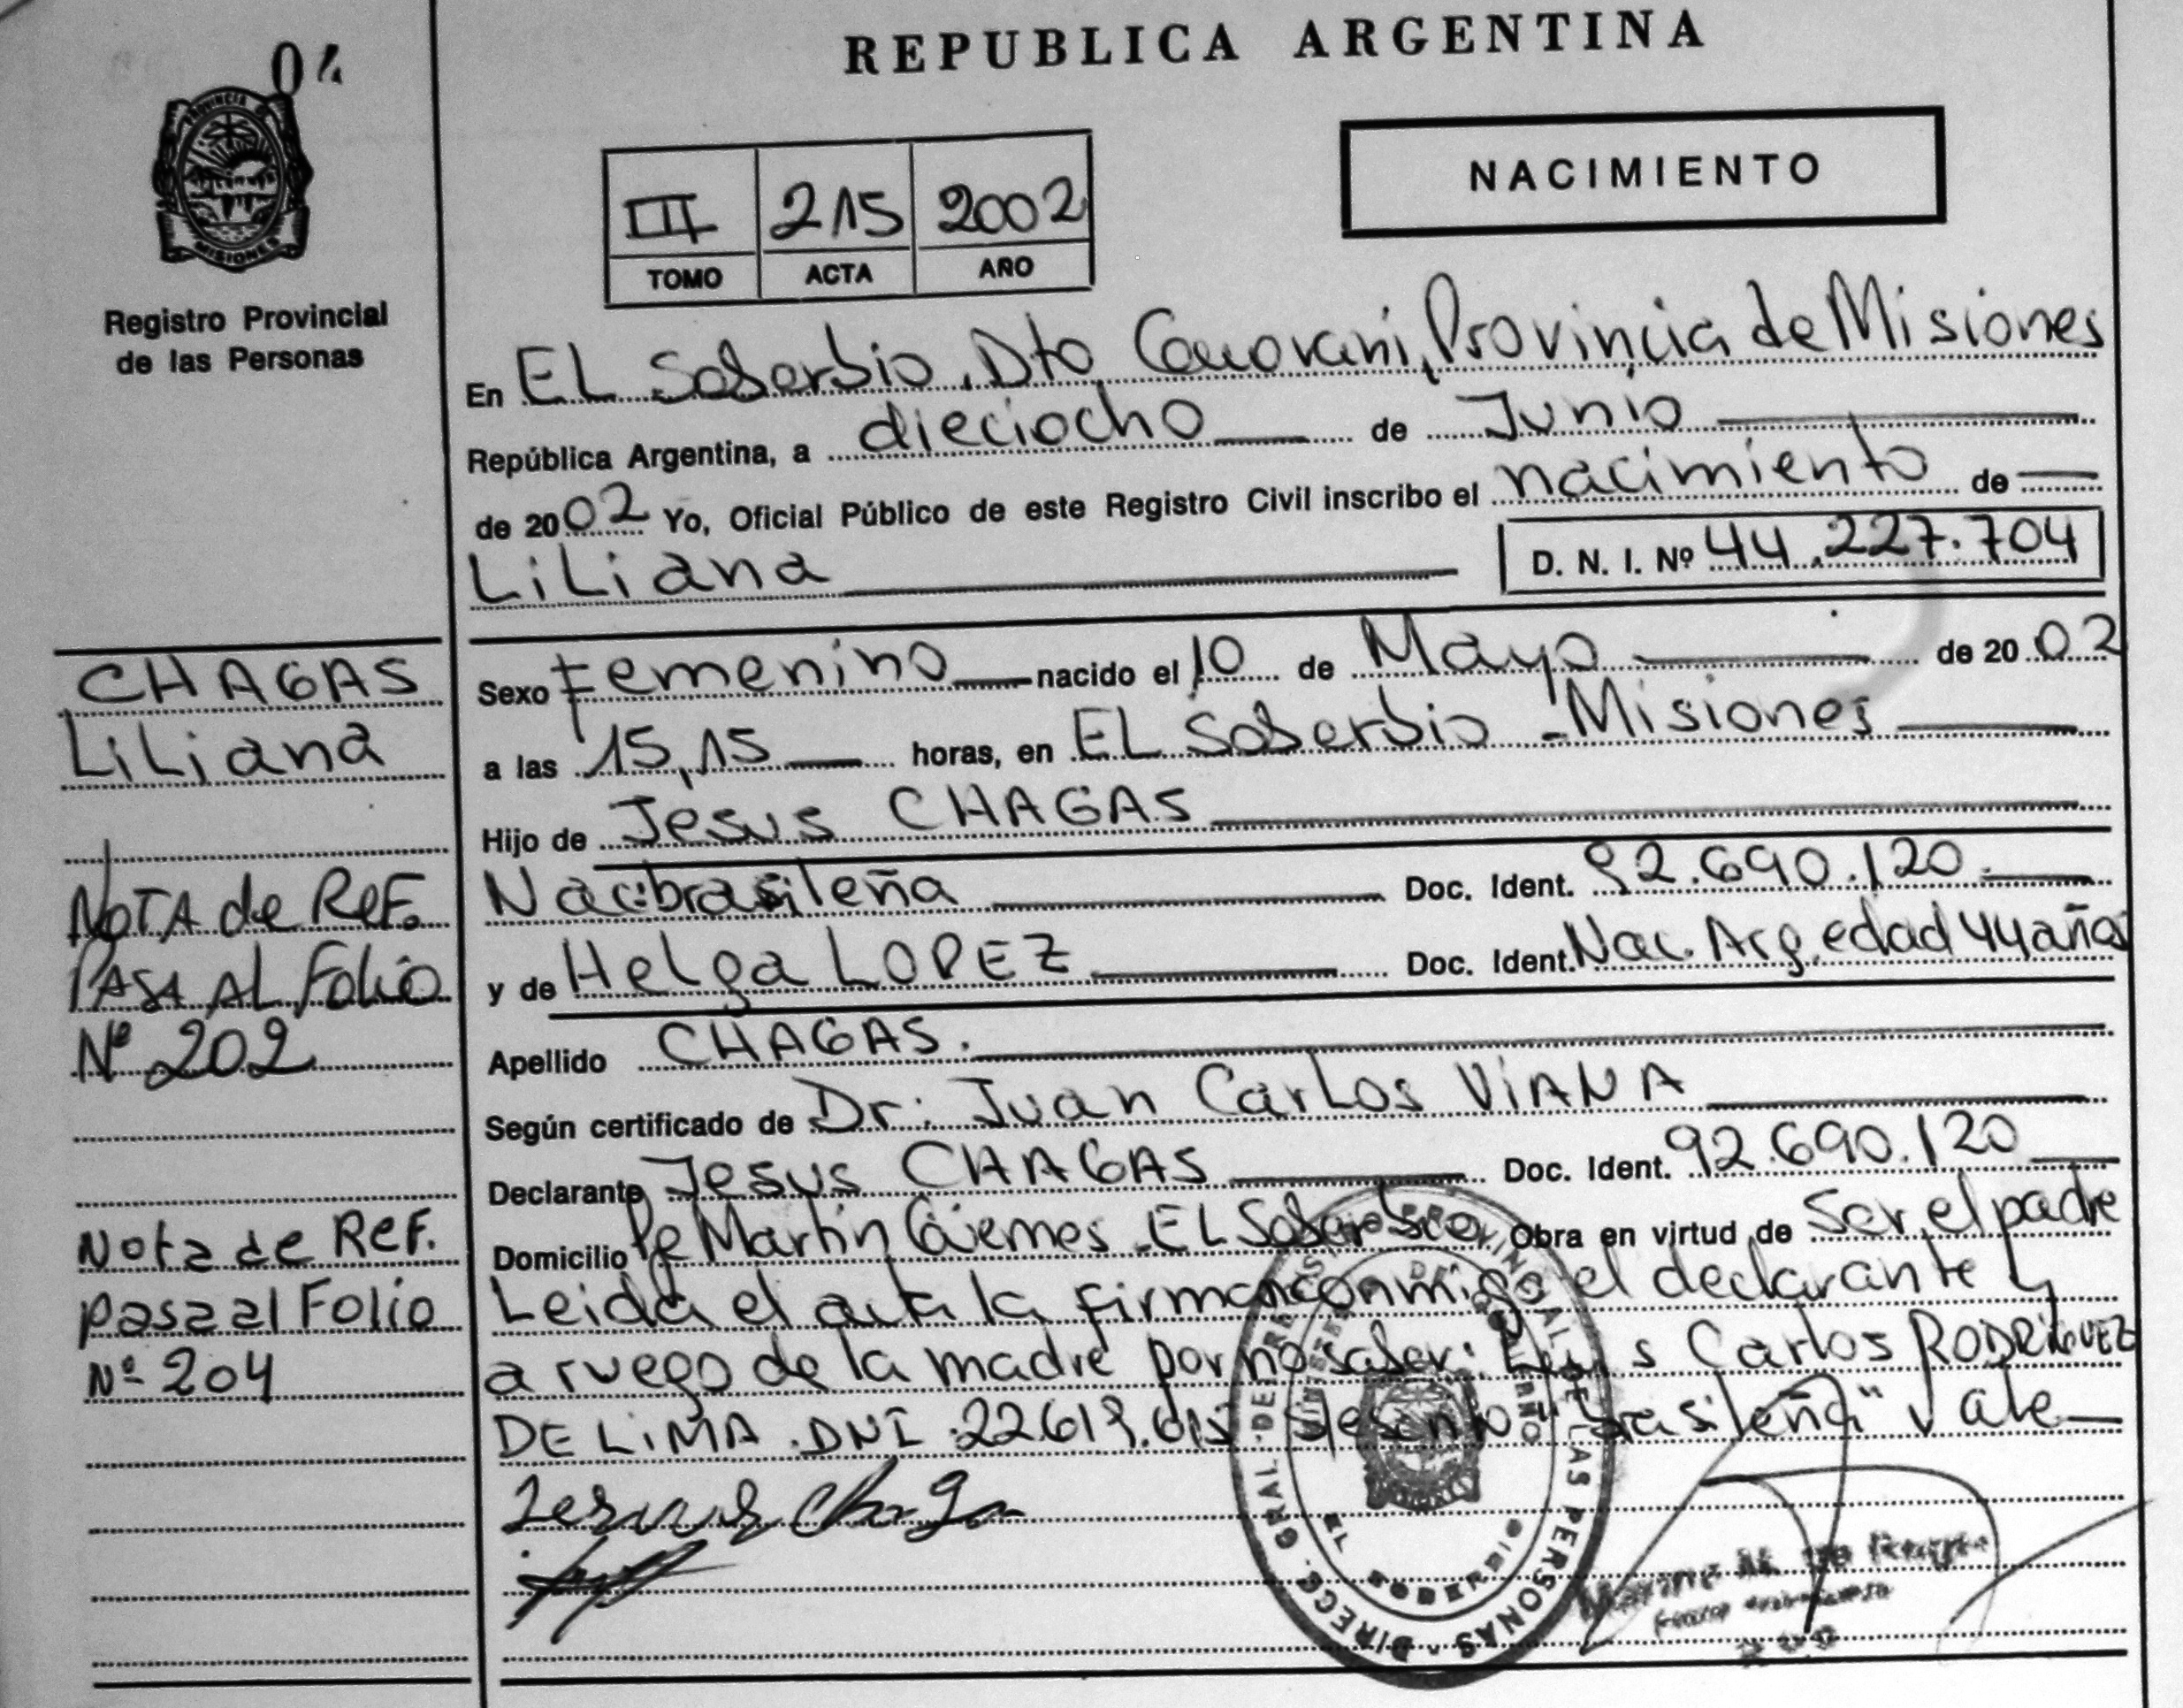 04
REPUBLICA ARGENTINA
PROVINCIA DE
MISIONES
Registro Provincial
de las Personas
III 215 2002
TOMO ACTA AÑO
NACIMIENTO
En EL Soberbio, Dto Guarani, Provincia de Misiones
República Argentina, a dieciocho de Junio
de 2002 Yo, Oficial Público de este Registro Civil inscribo el nacimiento de
LiLiana
D. N. I. Nº 44.227.704
CHAGAS
LiLiana
Sexo Femenino nacido el 10 de Mayo de 2002
a las 15,15 horas, en EL Soberbio - Misiones
Hijo de Jesus CHAGAS
Nac: brasileña Doc. Ident. 92.690.120
y de Helga LOPEZ Doc. Ident. Nac. Arg. edad 44 años
NOTA de REF.
PASA AL Folio
Nº 202
Apellido CHAGAS.
Según certificado de Dr: Juan Carlos ViANA
Declarante Jesus CHAGAS Doc. Ident. 92.690.120
Domicilio Pe Martin Güemes EL Soberbio Obra en virtud de Ser el padre
Nota de REF.
pasa al Folio
Nº 204
Leida el acta la firman conmigo el declarante y
a ruego de la madre por no saber: Luis Carlos RODRIGUEZ
DE LiMA. DNI 22.619.615 "brasileña" Vale
Jesus Chaga
DIRECC. GRAL. DE REGISTRO PROVINCIAL DE LAS PERSONAS
EL SOBERBIO